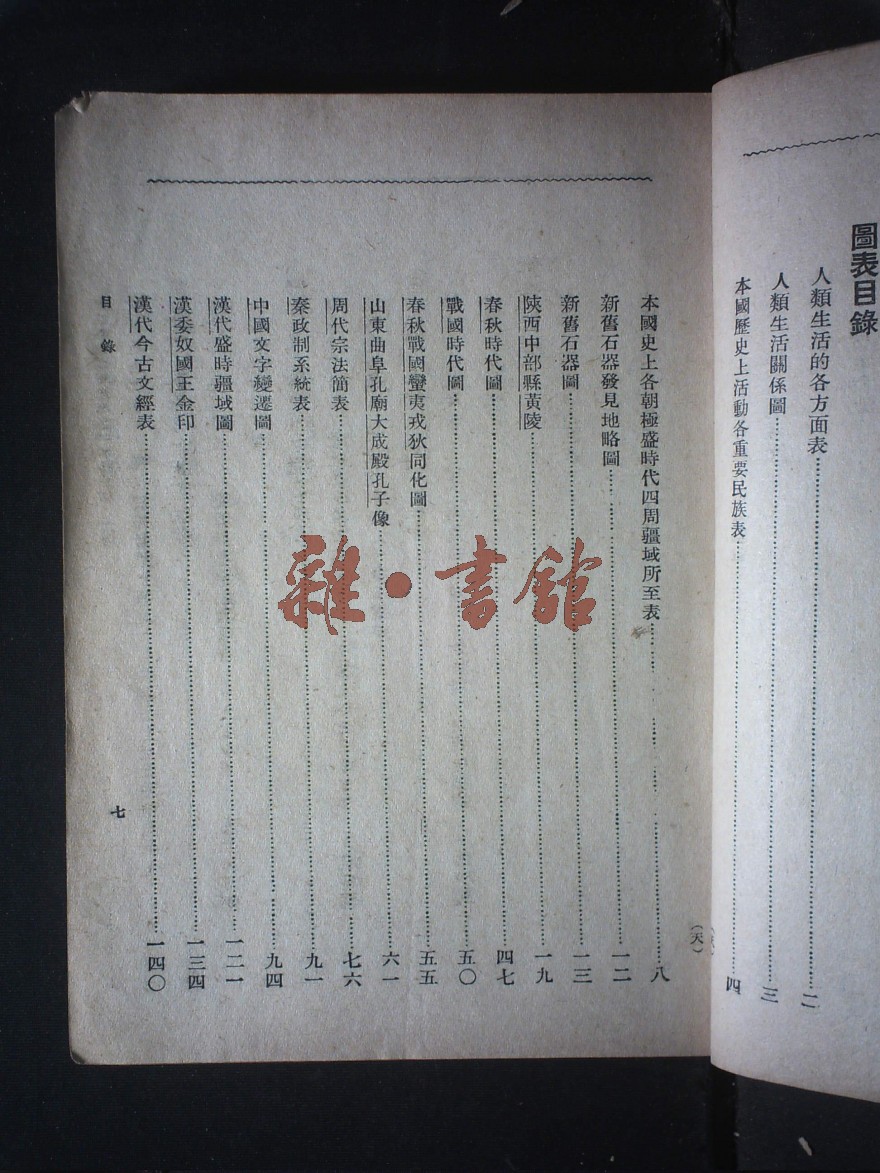 圖表目錄
人類生活的各方面表……二
人類生活關係圖……三
本國歷史上活動各重要民族表……四
(天)
本國史上各朝極盛時代四周疆域所至表……八
新舊石器發見地略圖……一二
新舊石器圖……一三
陝西中部縣黃陵……一九
春秋時代圖……四七
戰國時代圖……五〇
春秋戰國蠻夷戎狄同化圖……五五
山東曲阜孔廟大成殿孔子像……六一
周代宗法簡表……七六
秦政制系統表……九一
中國文字變遷圖……九四
漢代盛時疆域圖……一二一
漢委奴國王金印……一三四
漢代今古文經表……一四〇
目錄
七
雜·書館